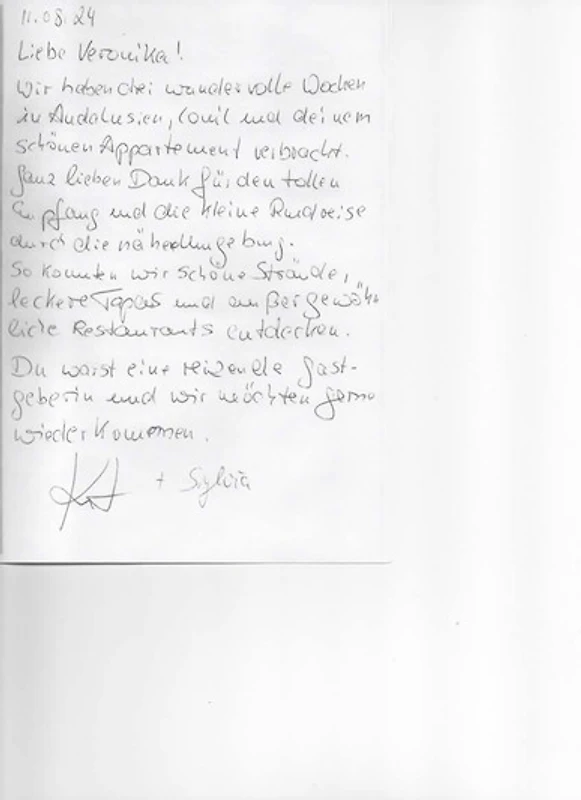 11.08.24
Liebe Veronika!
Wir haben drei wundervolle Wochen
in Andalusien, Conil und deinem
schönen Appartement verbracht.
Ganz lieben Dank für den tollen
Empfang und die kleine Rundreise
durch die nähere Umgebung.
So konnten wir schöne Strände,
leckere Tapas und außergewöhn
liche Restaurants entdecken.
Du warst eine reizende Gast-
geberin und wir möchten gerne
wiederkommen.
+ Sylvia